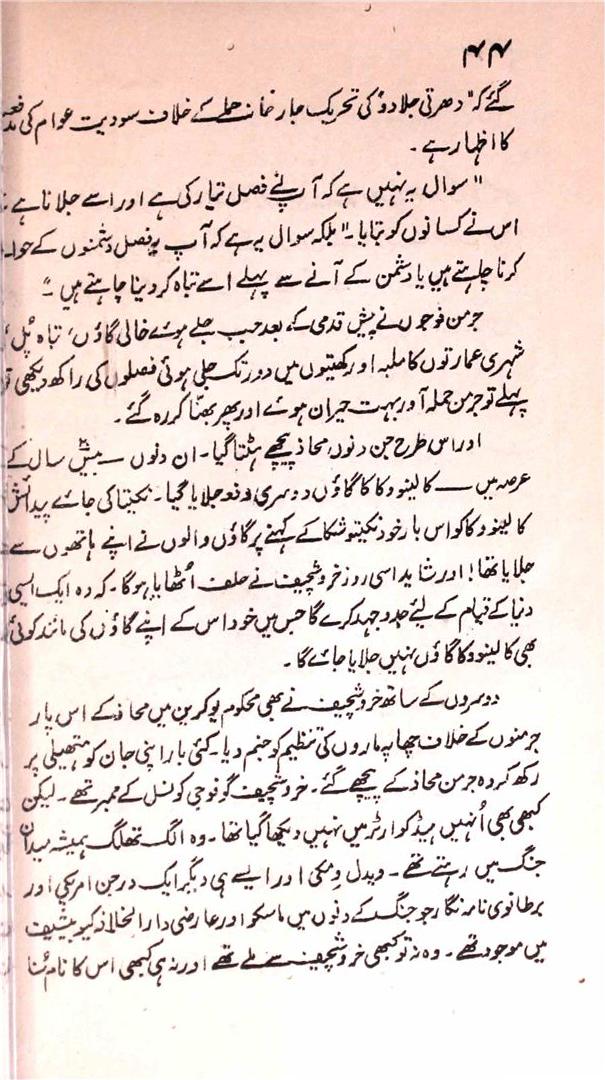 ۴۴
گئے کہ "دھرتی جلا دو" کی تحریک جارحانہ حملے کے خلاف سوویت عوام کی
کا اظہار ہے۔
"سوال یہ نہیں ہے کہ آپ نے فصل تیار کی ہے اور اسے جلانا ہے
اس نے کسانوں کو بتایا۔ "بلکہ سوال یہ ہے کہ آپ یہ فصل دشمنوں کے
کرنا چاہتے ہیں یا دشمن کے آنے سے پہلے اسے تباہ کر دینا چاہتے ہیں۔"
جرمن فوجوں نے پیش قدمی کے بعد جب جلے ہوئے خالی گاؤں، تباہ پُل،
شہری عمارتوں کا ملبہ اور کھیتوں میں دور تک جلی ہوئی فصلوں کی راکھ دیکھی تو
پہلے تو جرمن حملہ آور بہت حیران ہوئے اور پھر بھنّا کر رہ گئے۔
اور اس طرح جن دنوں محاذ پیچھے ہٹتا گیا۔ ان دنوں سے بیس سال کے
عرصہ میں — کالینووکا کا گاؤں دوسری دفعہ جلایا گیا۔ نکیتا کی جائے پیدائش
کالینووکا کو اس بار خود نکیتوشکا کے کہنے پر گاؤں والوں نے اپنے ہاتھوں سے
جلایا تھا! اور شاید اسی روز خروشچیف نے حلف اُٹھایا ہوگا۔ کہ وہ ایک ایسی
دنیا کے قیام کے لئے جدوجہد کرے گا جس میں خود اس کے اپنے گاؤں کی مانند کوئی
بھی کالینووکا گاؤں نہیں جلایا جائے گا۔
دوسروں کے ساتھ خروشچیف نے بھی محکوم یوکرین میں محاذ کے اس پار
جرمنوں کے خلاف چھاپہ ماروں کی تنظیم کو جنم دیا۔ کئی بار اپنی جان کو ہتھیلی پر
رکھ کر وہ جرمن محاذ کے پیچھے گئے۔ خروشچیف گو فوجی کونسل کے ممبر تھے۔ لیکن
کبھی بھی اُنہیں ہیڈ کوارٹر میں نہیں دیکھا گیا تھا۔ وہ الگ تھلگ ہمیشہ میدان
جنگ میں رہتے تھے۔ ویندل ولکی اور ایسے ہی دیگر ایک درجن امریکی اور
برطانوی نامہ نگار جو جنگ کے دنوں میں ماسکو اور عارضی دارالخلافہ کیوبیشیف
میں موجود تھے۔ وہ نہ تو کبھی خروشچیف سے ملے تھے اور نہ ہی کبھی اس کا نام سُنا